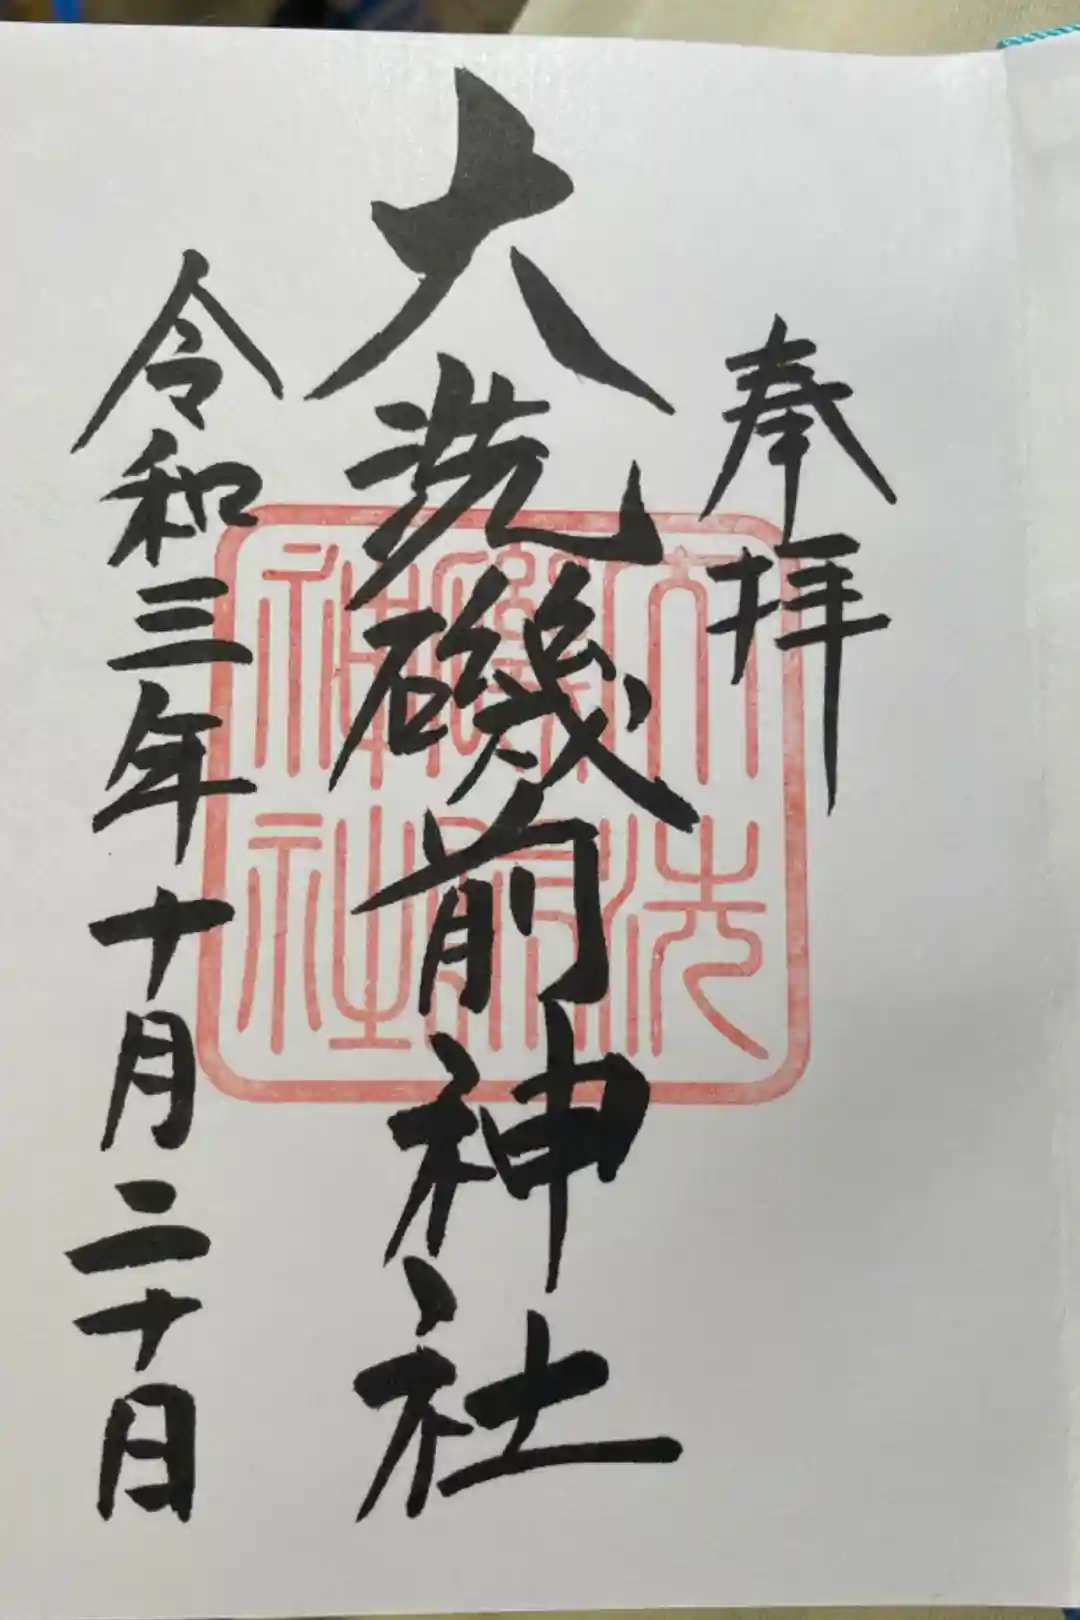 奉拝
大洗磯前神社
令和三年十月二十日
大洗
磯前
神社